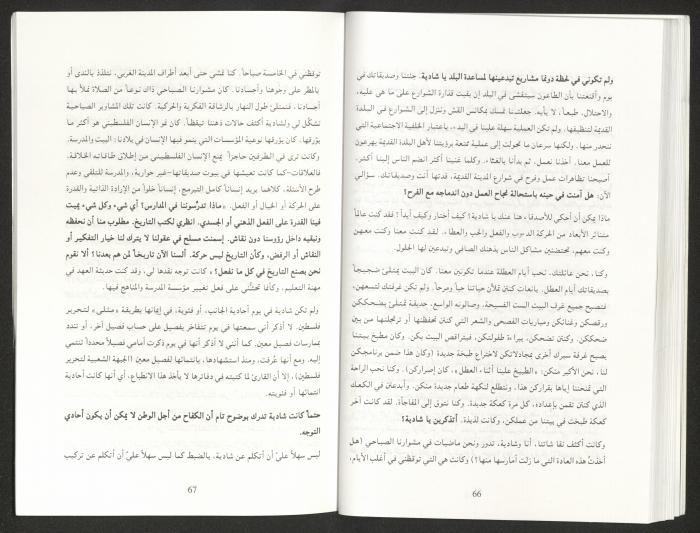 ولم تكوني في لحظة دونما مشاريع تبدعينها لمساعدة البلد يا شادية. جئتنا وصديقاتك في
يوم وأقنعتنا بأن الطاعون سيتفشى في البلد إن بقيت قذارة الشوارع على ما هي عليه،
والاحتلال، طبعاً، لا يأبه. جعلتنا نمسك بمكانس القش وننزل إلى الشوارع في البلدة
القديمة لتنظيفها. ولم تكن العملية سهلة علينا في البدء، باعتبار الخلفية الاجتماعية التي
ننحدر منها. ولكنها سرعان ما تحولت إلى عملية متعة برؤيتنا لأهل البلدة القديمة يهرعون
للعمل معنا. أخذنا نعمل، ثم بدأنا بالغناء. وكلما غنينا أكثر انضم الناس إلينا أكثر.
أصبحنا تظاهرات عمل وفرح في شوارع المدينة القديمة. قدتها أنت وصديقاتك. سؤالي
الآن: هل آمنت في حينه باستحالة نجاح العمل دون اندماجه مع الفرح؟
ماذا يمكن أن أحكي للأصدقاء هنا عنك يا شادية؟ كيف أختار وكيف أبدأ؟ فقد كنت عالماً
متناثر الأبعاد من الحركة الدؤوب والفعل والحب والعطاء. لقد كنت معنا وكنت معهن
وكنت معهم، تحتضنين مشاكل الناس بذهنك الصافي وتبدعين لها الحلول.
وكنا، نحن عائلتك، نحب أيام العطلة عندما تكونين معنا. كان البيت يمتلئ ضجيجاً
بصديقاتك أيام العطل. يانعات كنتن تملأن حياتنا حباً ومرحاً. ولم تكن غرفتك لتسعهن،
فتصبح جميع غرف البيت الست الفسيحة، وصالونه الواسع، حديقة تمتلئ بضحككن
ورقصكن وغنائكن ومباريات الفصحى والشعر التي كنتن تحفظنها أو ترتجلنها من بين
ضحككن. وكنتن تضحكن، ببراءة طفولتكن، فيتراقص البيت بكن. وكان مطبخ بيتنا
يصبح غرفة سيرك أخرى بمجادلاتكن لاختراع طبخة جديدة (وكان هذا ضمن برنامجكن
لنا، نحن الأكبر منكن: «الطبيخ علينا أثناء العطل»، كان إصراركن). وكنا نحب الراحة
التي تمنحننا إياها بقراركن هذا. ونتطلع لنكهة طعام جديدة منكن. وأبدعتن في الكعك
الذي كنتن تقمن بإعداده، كل مرة كعكة جديدة. وكنا نتوق إلى المفاجأة. لقد كانت آخر
كعكة طبخت في بيتنا من عملكن. وكانت لذيذة. أتذكرين يا شادية؟
وكانت أكثف نقاشاتنا، أنا وشادية، تدور ونحن ماضيات في مشوارنا الصباحي (هل
أخذتُ هذه العادة التي ما زلت أمارسها منها؟) وكانت هي التي توقظني في أغلب الأيام،
66
توقظني في الخامسة صباحاً. كنا نمشي حتى أبعد أطراف المدينة الغربي، نتلذذ بالندى أو
بالمطر على وجوهنا وأجسادنا. كان مشوارنا الصباحي ذاك نوعاً من الصلاة نملأ بها
أجسادنا، فنمتلئ طول النهار بالرشاقة الفكرية والحركية. كانت تلك المشاوير الصباحية
تشكل لي ولشادية أكثف حالات ذهننا تيقظاً. كان نمو الإنسان الفلسطيني هو أكثر ما
يؤرقها. كان يؤرقها نوعية المؤسسات التي ينمو فيها الإنسان في بلادنا: البيت والمدرسة.
وكانت ترى في الطرفين حاجزاً يمنع الإنسان الفلسطيني من إطلاق طاقاته الخلاقة.
فالعلاقات-كما كانت تعيشها في بيوت صديقاتها-غير حوارية، والمدرسة للتلقي وعدم
طرح الأسئلة، كلاهما يريد إنساناً كامل التبرمج، إنساناً خلواً من الإرادة الذاتية والقدرة
على الحركة أو الخيال أو الفعل. «ماذا تدرّسوننا في المدارس؟ أي شيء وكل شيء يميت
فينا القدرة على الفعل الذهني أو الجسدي. انظري لكتب التاريخ. مطلوب منا أن نحفظه
ونبقيه داخل رؤوسنا دون نقاش. إسمنت مسلح في عقولنا لا يترك لنا خيار التفكير أو
النقاش أو الرفض، وكأن التاريخ ليس حركة. ألسنا الآن تاريخاً لمن هم بعدنا؟ ألا نقوم
نحن بصنع التاريخ في كل ما نفعل؟» كانت توجه نقدها لي، وقد كنت حديثة العهد في
مهنة التعليم، وكأنما تحثّني على فعل تغيير مؤسسة المدرسة والمناهج فيها.
ولم تكن شادية في يوم أحادية الجانب، أو فئوية، في إيمانها بطريقة «مثلى» لتحرير
فلسطين. لا أذكر أني سمعتها في يوم تتفاخر بفصيل على حساب فصيل آخر، أو تندد
بممارسات فصيل معين. كما أنني لا أذكر أنها في يوم ذكرت أمامي فصيلاً محدداً تنتمي
إليه. ومع أنها عُرفت، ومنذ استشهادها، بانتمائها لفصيل معين (الجبهة الشعبية لتحرير
فلسطين)، إلا أن القارئ لما كتبته في دفاترها لا يأخذ هذا الانطباع، أي أنها كانت أحادية
انتمائها أو فئويته.
حتماً كانت شادية تدرك بوضوح تام أن الكفاح من أجل الوطن لا يمكن أن يكون أحادي
التوجه.
ليس سهلاً عليّ أن أتكلم عن شادية، بالضبط كما ليس سهلاً عليّ أن أتكلم عن تركيب
67